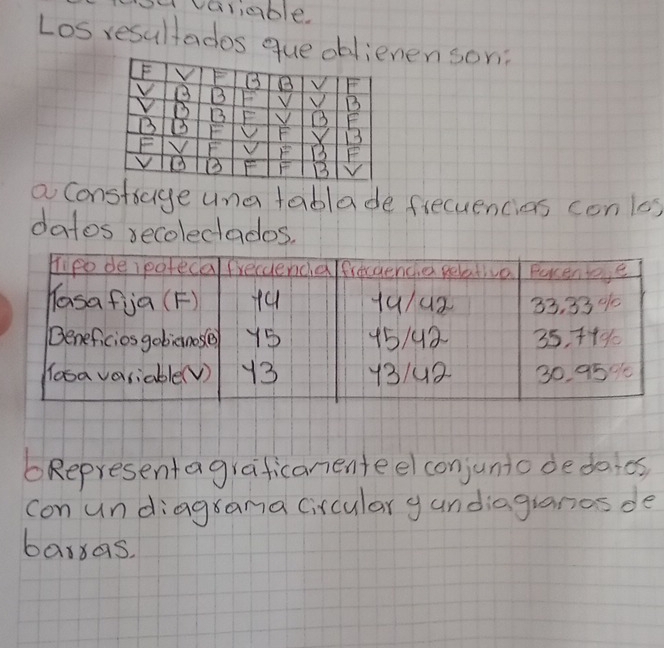 variable.
Los resultados que obtienen son:
F V F B B V F
V B B F V V B
V B B F V B F
B B F V F V B
F V F V F B F
V B B F F B V
a Construye una tabla de frecuencias con los
datos recolectados.
Tipo de ipoteca frecuencia frecuencia relativa Porcentaje
Tasa fija (F) 14 14/42 33,33%
Beneficios gobiernos(B) 15 15/42 35,71%
Tasa variable (V) 13 13/42 30,95%
b Representa graficamente el conjunto de datos,
con un diagrama circular y un diagramas de
barras.